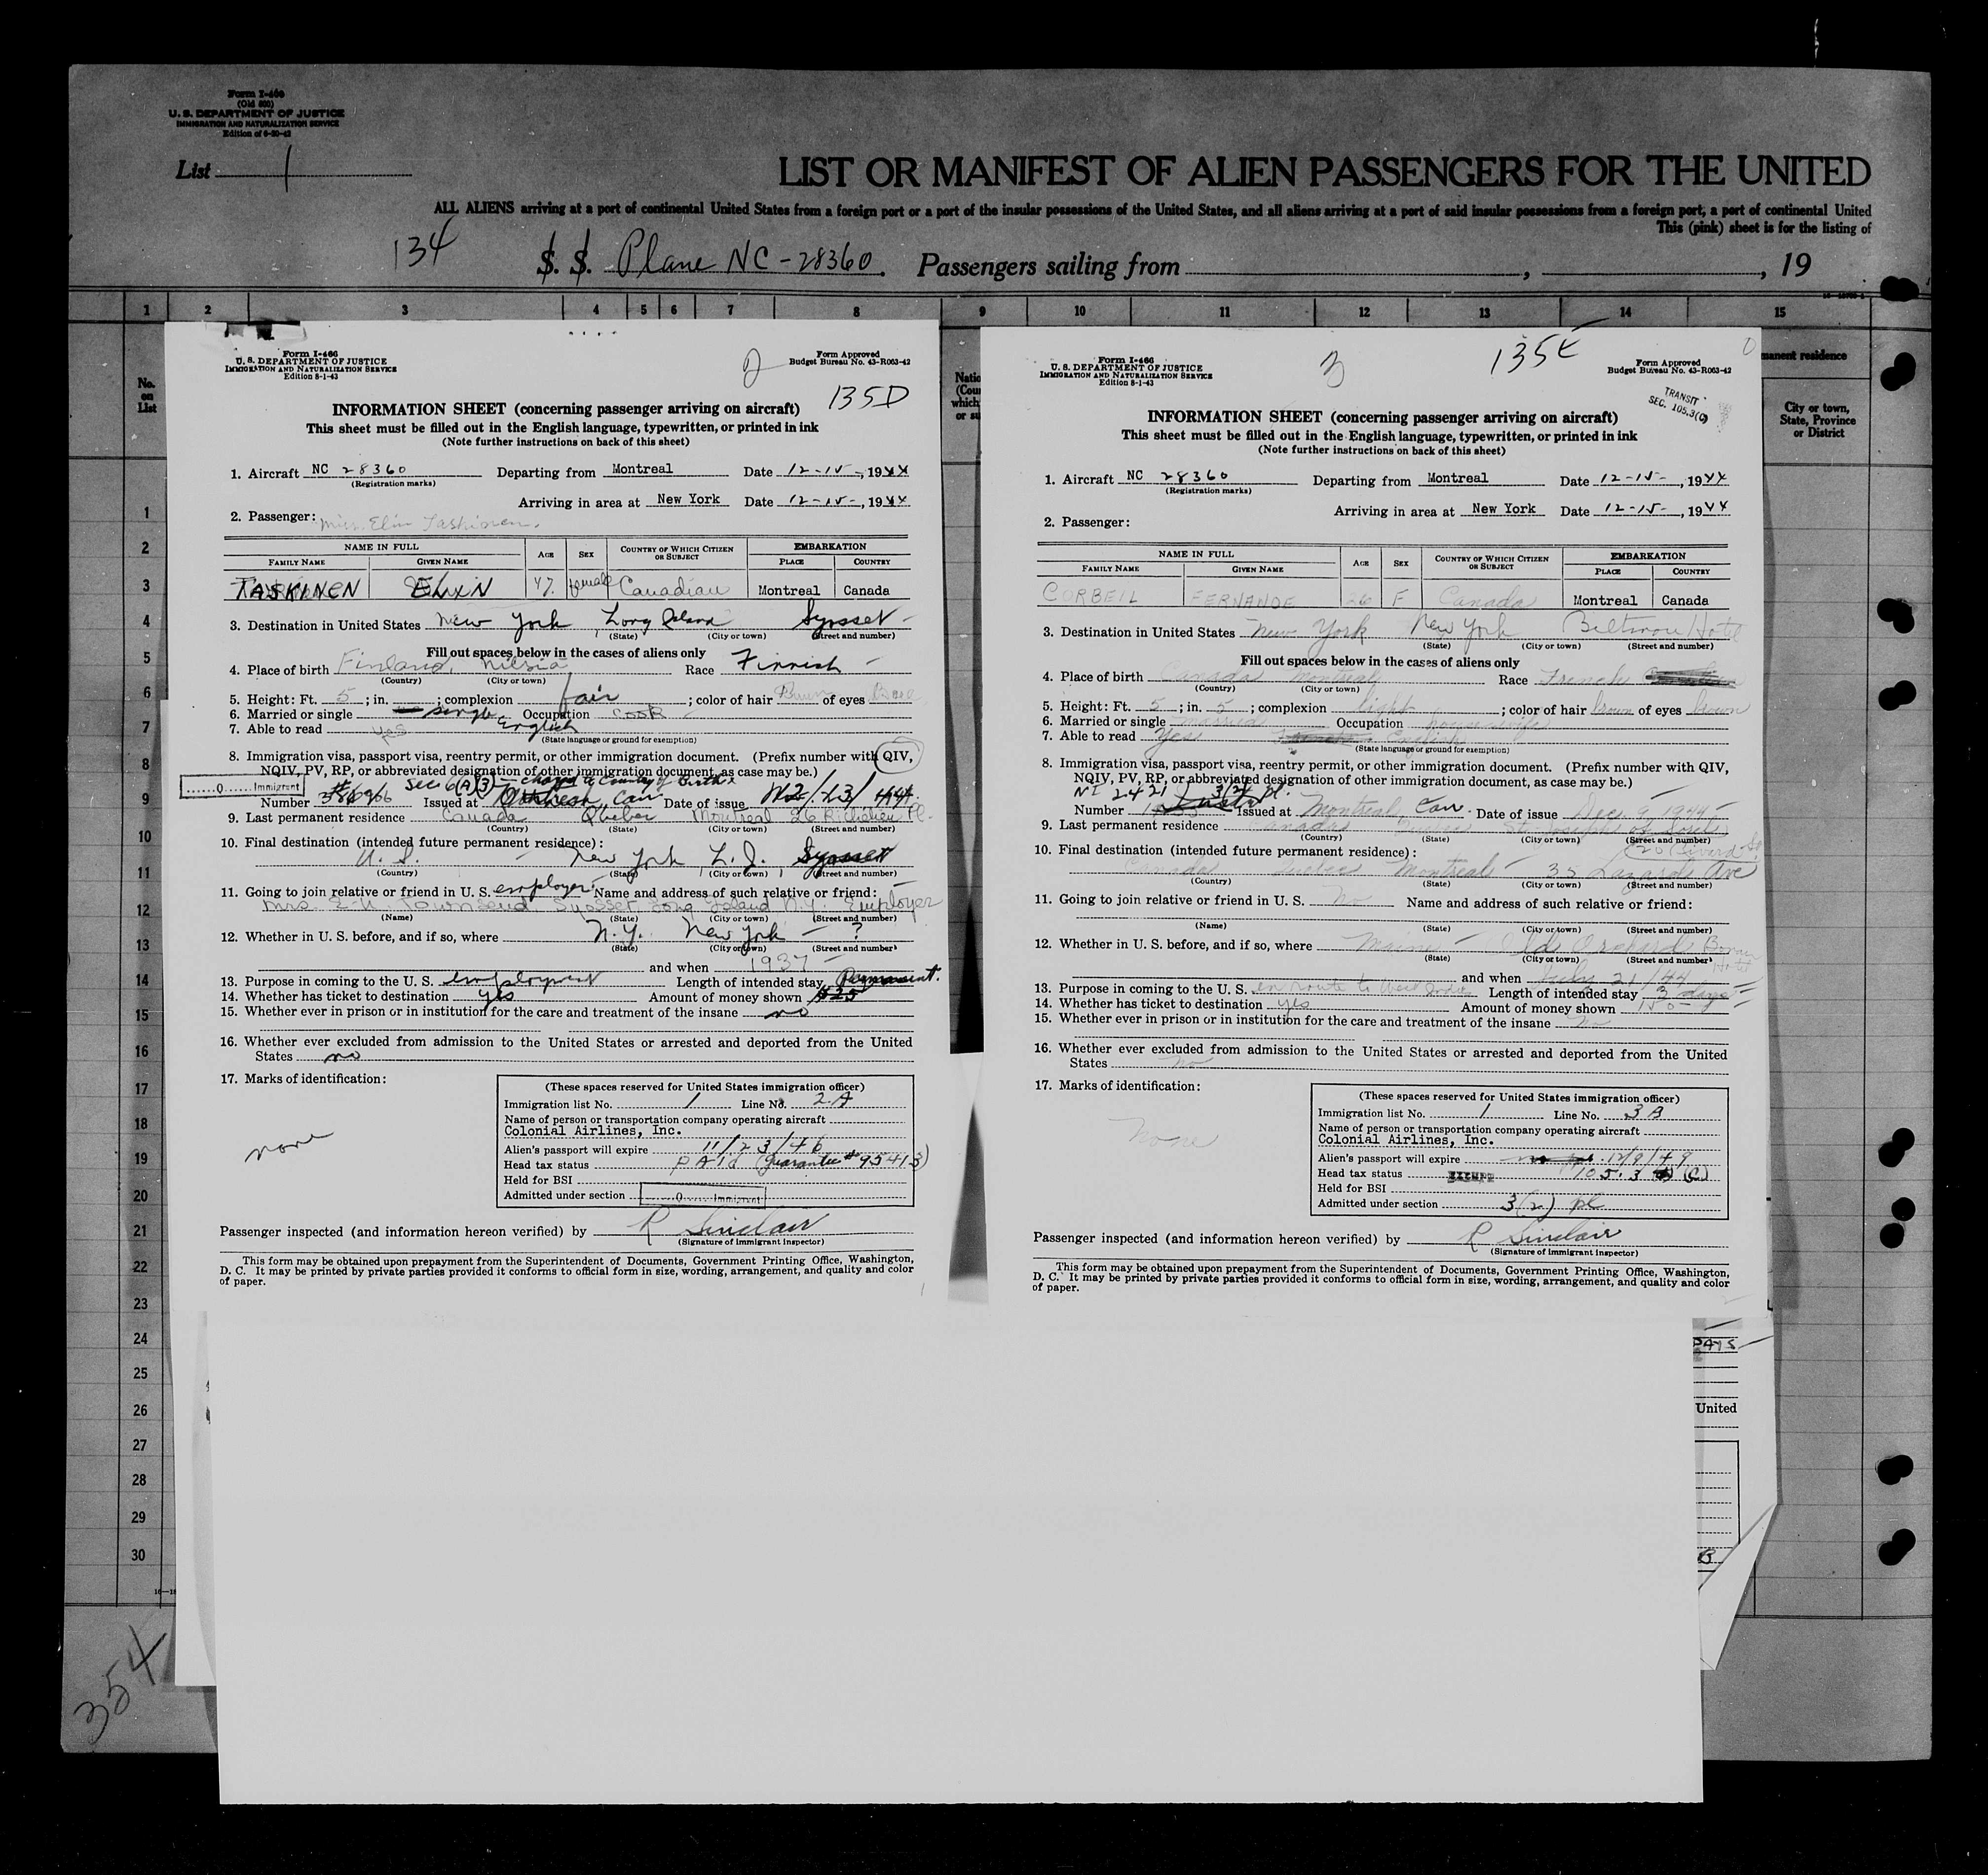 Form I-466
(Old 500)
U. S. DEPARTMENT OF JUSTICE
IMMIGRATION AND NATURALIZATION SERVICE
Edition of 6-20-42
List 1
LIST OR MANIFEST OF ALIEN PASSENGERS FOR THE UNITED
ALL ALIENS arriving at a port of continental United States from a foreign port or a port of the insular possessions of the United States, and all aliens arriving at a port of said insular possessions from a foreign port, a port of continental United
This (pink) sheet is for the listing of
134 S. S. Plane NC-28360. Passengers sailing from , , 19
1 2 3 4 5 6 7 8 9 10 11 12 13 14 15
No. on List
manent residence
City or town, State, Province or District
1
2
3
4
5
6
7
8
9
10
11
12
13
14
15
16
17
18
19
20
21
22
23
24
25
26
27
28
29
30
354
Form I-466
U. S. DEPARTMENT OF JUSTICE
IMMIGRATION AND NATURALIZATION SERVICE
Edition 8-1-43
2
Form Approved
Budget Bureau No. 43-R063-42
135D
INFORMATION SHEET (concerning passenger arriving on aircraft)
This sheet must be filled out in the English language, typewritten, or printed in ink
(Note further instructions on back of this sheet)
1. Aircraft NC 28360 Departing from Montreal Date 12-15-, 1944
(Registration marks)
Arriving in area at New York Date 12-15-, 1944
2. Passenger: Miss Elin Taskinen.
NAME IN FULL AGE SEX COUNTRY OF WHICH CITIZEN OR SUBJECT EMBARKATION
FAMILY NAME GIVEN NAME PLACE COUNTRY
TASKINEN 47. female Canadian Montreal Canada
3. Destination in United States New York, Long Island Syosset
(State) (City or town) (Street and number)
Fill out spaces below in the cases of aliens only
4. Place of birth Finland, Race Finnish
(Country) (City or town)
5. Height: Ft. 5; in. ; complexion fair; color of hair Brown of eyes
6. Married or single single Occupation cook
7. Able to read yes English
(State language or ground for exemption)
8. Immigration visa, passport visa, reentry permit, or other immigration document. (Prefix number with QIV,
NQIV, PV, RP, or abbreviated designation of other immigration document, as case may be.)
Q Immigrant
Sec 6(A)(3) - charged to Country of birth
Number Issued at Can Date of issue
9. Last permanent residence Canada Quebec Montreal 26 Richelieu Pl.
(Country) (State) (City or town) (Street and number)
10. Final destination (intended future permanent residence):
U. S. - New York, L. I., Syosset
(Country) (State) (City or town) (Street and number)
11. Going to join relative or friend in U. S. employer. Name and address of such relative or friend:
Mrs. E. M. Townsend Syosset Long Island N.Y. Employer
(Name) (State) (City or town) (Street and number)
12. Whether in U. S. before, and if so, where N.Y. New York - ?
(State) (City or town) (Street and number)
and when 1937
13. Purpose in coming to the U. S. employment Length of intended stay Permanent.
14. Whether has ticket to destination yes Amount of money shown $25
15. Whether ever in prison or in institution for the care and treatment of the insane no
16. Whether ever excluded from admission to the United States or arrested and deported from the United
States no
17. Marks of identification:
none
(These spaces reserved for United States immigration officer)
Immigration list No. 1 Line No. 2 A
Name of person or transportation company operating aircraft
Colonial Airlines, Inc.
Alien's passport will expire 11/23/46
Head tax status PAID (Guarantee #95413)
Held for BSI
Admitted under section Q Immigrant
Passenger inspected (and information hereon verified) by R Sinclair
(Signature of immigrant inspector)
This form may be obtained upon prepayment from the Superintendent of Documents, Government Printing Office, Washington,
D. C. It may be printed by private parties provided it conforms to official form in size, wording, arrangement, and quality and color
of paper.
Form I-466
U. S. DEPARTMENT OF JUSTICE
IMMIGRATION AND NATURALIZATION SERVICE
Edition 8-1-43
3
135E
Form Approved
Budget Bureau No. 43-R063-42
TRANSIT
SEC. 105.3(C)
INFORMATION SHEET (concerning passenger arriving on aircraft)
This sheet must be filled out in the English language, typewritten, or printed in ink
(Note further instructions on back of this sheet)
1. Aircraft NC 28360 Departing from Montreal Date 12-15-, 1944
(Registration marks)
Arriving in area at New York Date 12-15-, 1944
2. Passenger:
NAME IN FULL AGE SEX COUNTRY OF WHICH CITIZEN OR SUBJECT EMBARKATION
FAMILY NAME GIVEN NAME PLACE COUNTRY
CORBEIL FERNANDE 26 F Canada Montreal Canada
3. Destination in United States New York New York Biltmore Hotel
(State) (City or town) (Street and number)
Fill out spaces below in the cases of aliens only
4. Place of birth Canada Montreal Race French
(Country) (City or town)
5. Height: Ft. 5; in. 5; complexion light; color of hair brown of eyes brown
6. Married or single married Occupation housewife
7. Able to read Yes English
(State language or ground for exemption)
8. Immigration visa, passport visa, reentry permit, or other immigration document. (Prefix number with QIV,
NQIV, PV, RP, or abbreviated designation of other immigration document, as case may be.)
NI 2421 3(2) pl.
Number Issued at Montreal, Can. Date of issue Dec. 9, 1944
9. Last permanent residence Canada Quebec St. Joseph of Sorel
(Country) (State) (City or town) (Street and number)
10. Final destination (intended future permanent residence):
Canada Quebec Montreal 35 Ave
(Country) (State) (City or town) (Street and number)
11. Going to join relative or friend in U. S. No Name and address of such relative or friend:
(Name) (State) (City or town) (Street and number)
12. Whether in U. S. before, and if so, where Maine - Old Orchard Hotel
(State) (City or town) (Street and number)
and when July 21/44
13. Purpose in coming to the U. S. en route to West Indies Length of intended stay 3 days
14. Whether has ticket to destination yes Amount of money shown 150-
15. Whether ever in prison or in institution for the care and treatment of the insane No
16. Whether ever excluded from admission to the United States or arrested and deported from the United
States No
17. Marks of identification:
None
(These spaces reserved for United States immigration officer)
Immigration list No. 1 Line No. 3 B
Name of person or transportation company operating aircraft
Colonial Airlines, Inc.
Alien's passport will expire 12/9/49
Head tax status EXEMPT 105.3 (C)
Held for BSI
Admitted under section 3(2) pl
Passenger inspected (and information hereon verified) by R Sinclair
(Signature of immigrant inspector)
This form may be obtained upon prepayment from the Superintendent of Documents, Government Printing Office, Washington,
D. C. It may be printed by private parties provided it conforms to official form in size, wording, arrangement, and quality and color
of paper.
United